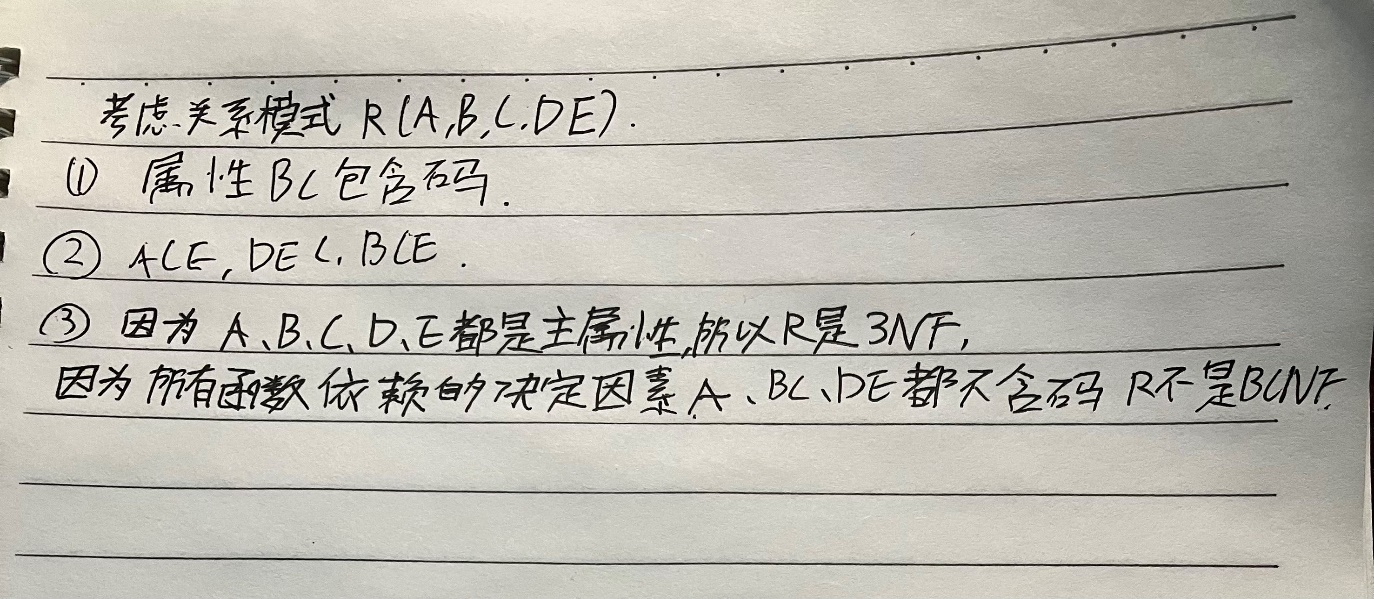 考虑关系模式 R(A,B,C,DE).
(1) 属性BC包含码.
② ACE, DEC, BCE.
③ 因为 A、B、C、D、E都是主属性,所以R是3NF,
因为所有函数依赖的决定因素A、BC、DE都不含码 R不是BCNF.